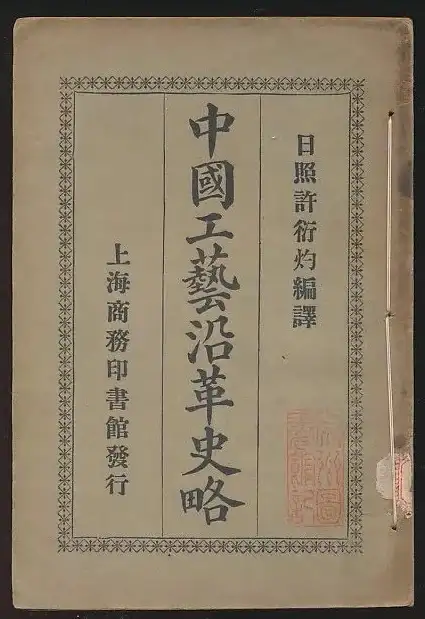 日照許衍灼編譯
中國工藝沿革史略
上海商務印書館發行